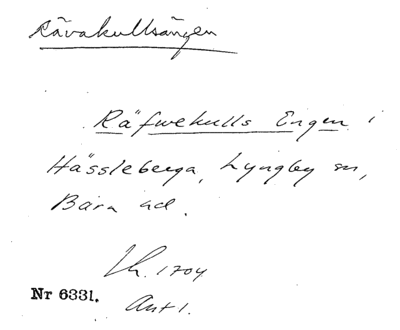 Rävakullsängen
Räfwekulls Engen i
Hässleberga, Lyngby sn,
Bara hd.
Lh. 1704
Nr 6331.
Ant 1.